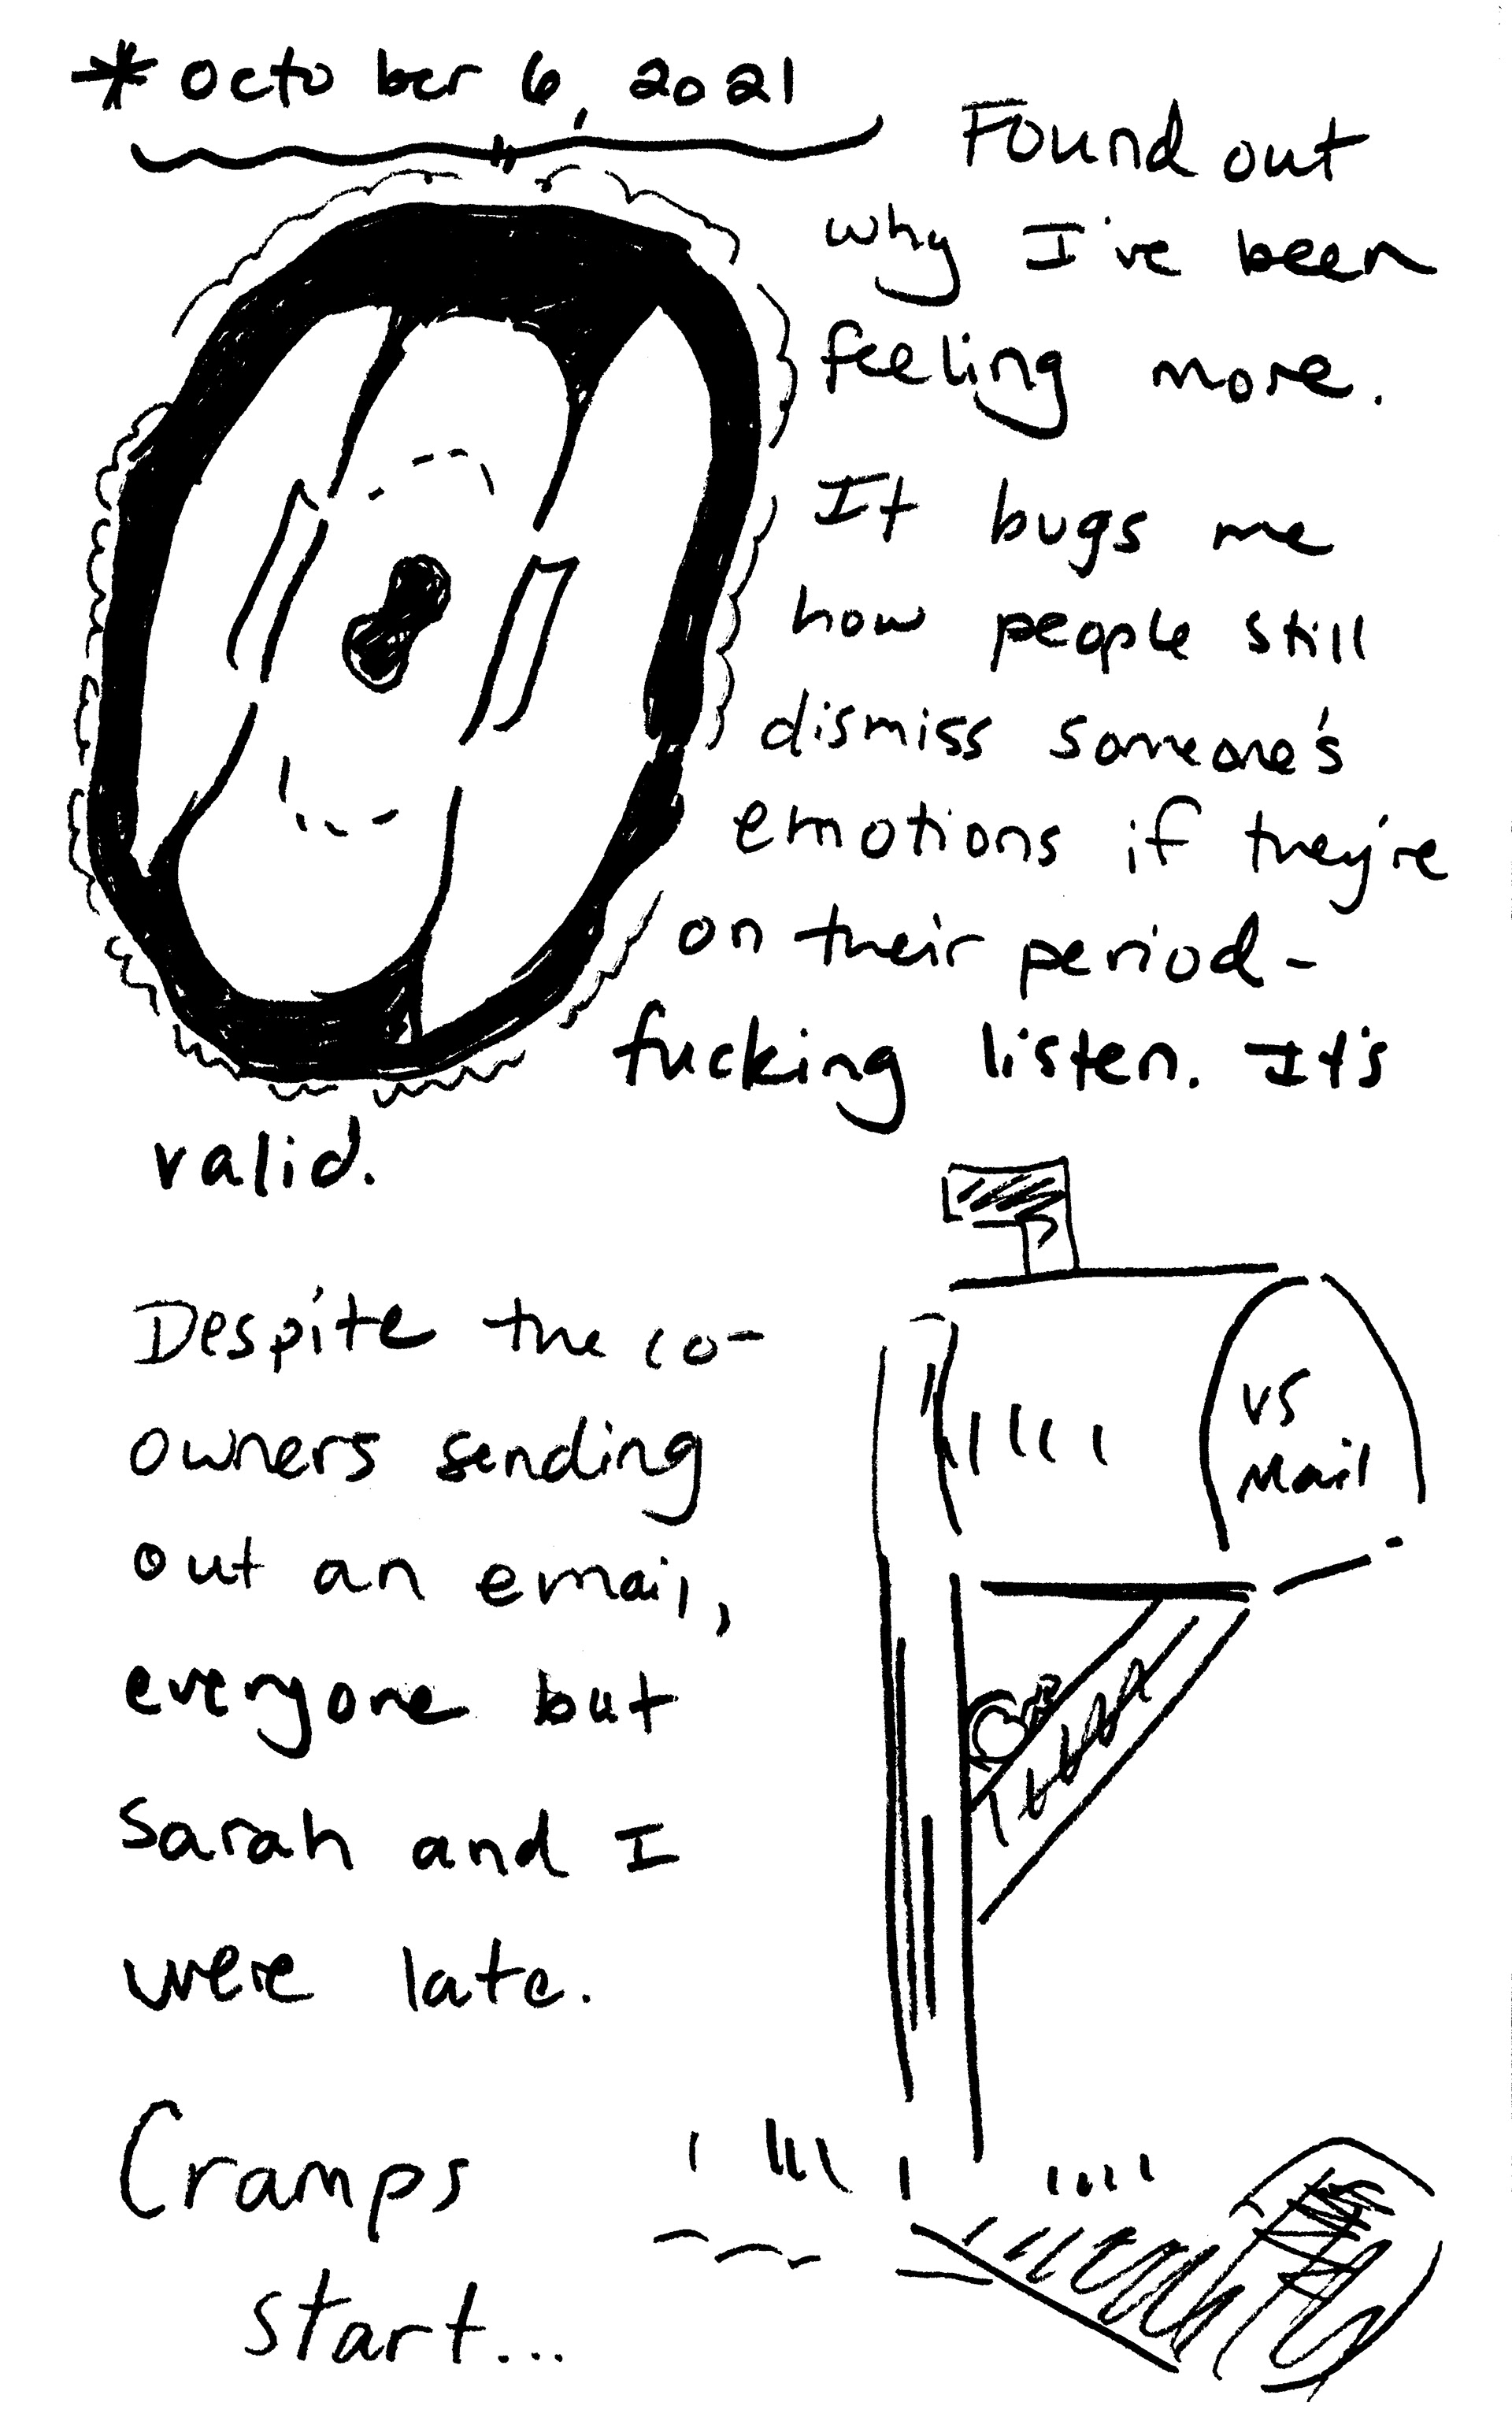 *October 6, 2021
Found out
why I've been
feeling more.
It bugs me
how people still
dismiss someone's
emotions if they're
on their period-
fucking listen. It's
valid.
Despite the co-
owners sending
out an email,
everyone but
Sarah and I
were late.
Cramps
start...
US
Mail